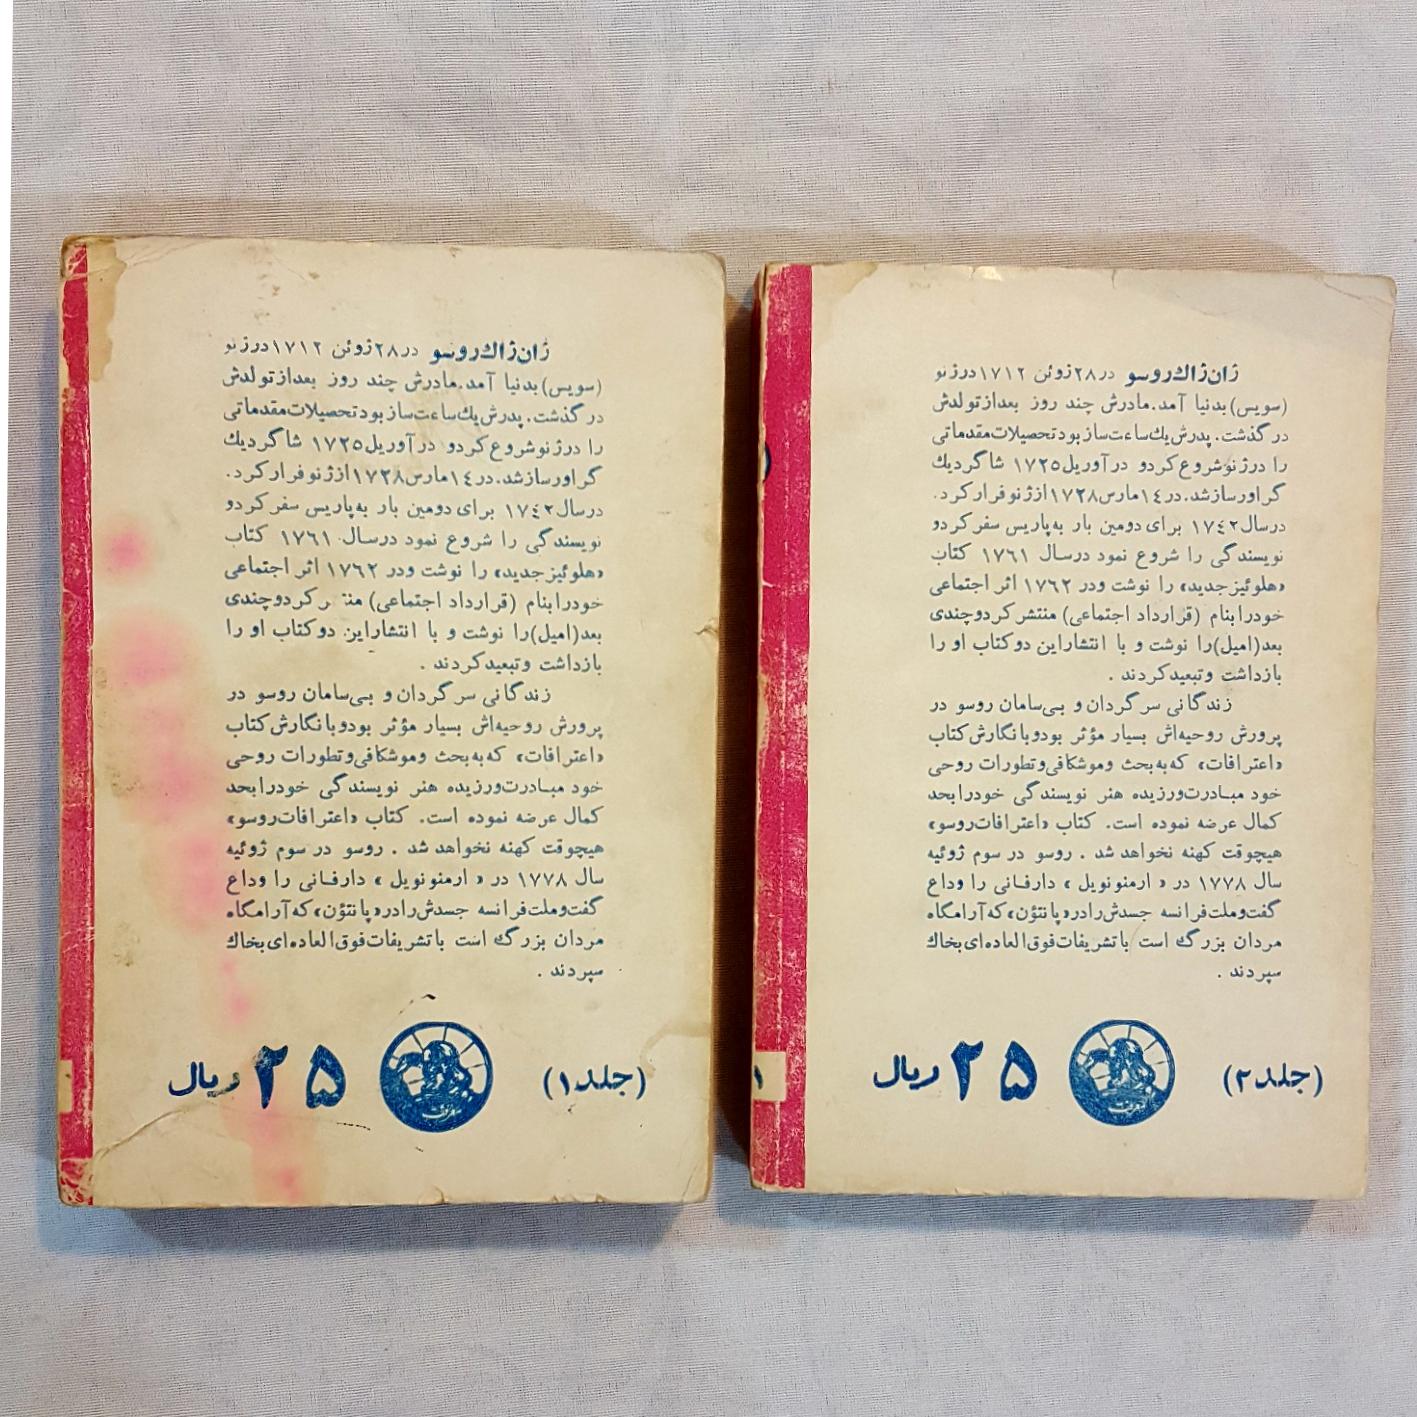 ژان ژاك روسو در ۲۸ ژوئن ۱۷۱۲ در ژنو
(سویس) بدنیا آمد. مادرش چند روز بعد از تولدش
در گذشت. پدرش یك ساعت ساز بود تحصیلات مقدماتی
را در ژنو شروع کرد و در آوریل ۱۷۲۵ شاگرد یك
گراور ساز شد. در ۱٤ مارس ۱۷۲۸ از ژنو فرار کرد.
در سال ۱۷٤۲ برای دومین بار به پاریس سفر کرد و
نویسندگی را شروع نمود در سال ۱۷٦۱ کتاب
«هلوئیز جدید» را نوشت و در ۱۷٦۲ اثر اجتماعی
خود را بنام (قرارداد اجتماعی) کرد و چندی
بعد (امیل) را نوشت و با انتشار این دو کتاب او را
بازداشت و تبعید کردند .
زندگانی سرگردان و بی‌سامان روسو در
پرورش روحیه‌اش بسیار مؤثر بود و با نگارش کتاب
«اعترافات» که به بحث و موشکافی و تطورات روحی
خود مبادرت ورزیده هنر نویسندگی خود را بحد
کمال عرضه نموده است. کتاب «اعترافات روسو»
هیچوقت کهنه نخواهد شد . روسو در سوم ژوئیه
سال ۱۷۷۸ در « ارمنونویل » دارفانی را وداع
گفت و ملت فرانسه جسدش را در «پانتؤن» که آرامگاه
مردان بزرگ است با تشریفات فوق العاده‌ای بخاك
سپردند .
(جلد ۱) ۲۵ ریال
ژان ژاك روسو در ۲۸ ژوئن ۱۷۱۲ در ژنو
(سویس) بدنیا آمد. مادرش چند روز بعد از تولدش
در گذشت. پدرش یك ساعت ساز بود تحصیلات مقدماتی
را در ژنو شروع کرد و در آوریل ۱۷۲۵ شاگرد یك
گراور ساز شد. در ۱٤ مارس ۱۷۲۸ از ژنو فرار کرد.
در سال ۱۷٤۲ برای دومین بار به پاریس سفر کرد و
نویسندگی را شروع نمود در سال ۱۷٦۱ کتاب
«هلوئیز جدید» را نوشت و در ۱۷٦۲ اثر اجتماعی
خود را بنام (قرارداد اجتماعی) منتشر کرد و چندی
بعد (امیل) را نوشت و با انتشار این دو کتاب او را
بازداشت و تبعید کردند .
زندگانی سرگردان و بی‌سامان روسو در
پرورش روحیه‌اش بسیار مؤثر بود و با نگارش کتاب
«اعترافات» که به بحث و موشکافی و تطورات روحی
خود مبادرت ورزیده هنر نویسندگی خود را بحد
کمال عرضه نموده است. کتاب «اعترافات روسو»
هیچوقت کهنه نخواهد شد . روسو در سوم ژوئیه
سال ۱۷۷۸ در « ارمنونویل » دارفانی را وداع
گفت و ملت فرانسه جسدش را در «پانتؤن» که آرامگاه
مردان بزرگ است با تشریفات فوق العاده‌ای بخاك
سپردند .
(جلد ۲) ۲۵ ریال
۱